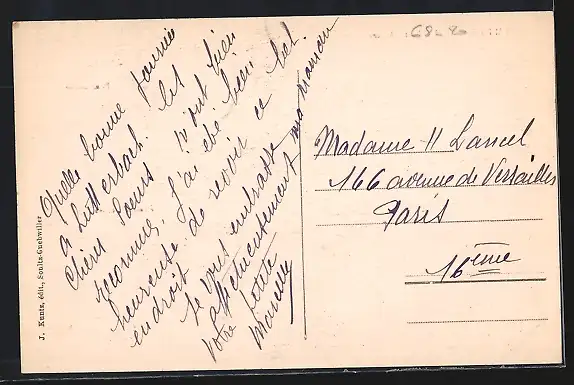 Quelle bonne journée
à Lutterbach. Les
chères Soeurs m'ont bien
reconnue. J'ai été bien
heureuse de revoir ce bel
endroit
Je vous embrasse
affectueusement ma Maman
Votre petite
Marcelle
Madame H Lancel
166 avenue de Versailles
Paris
16ème
J. Kuntz, édit., Soultz-Guebwiller